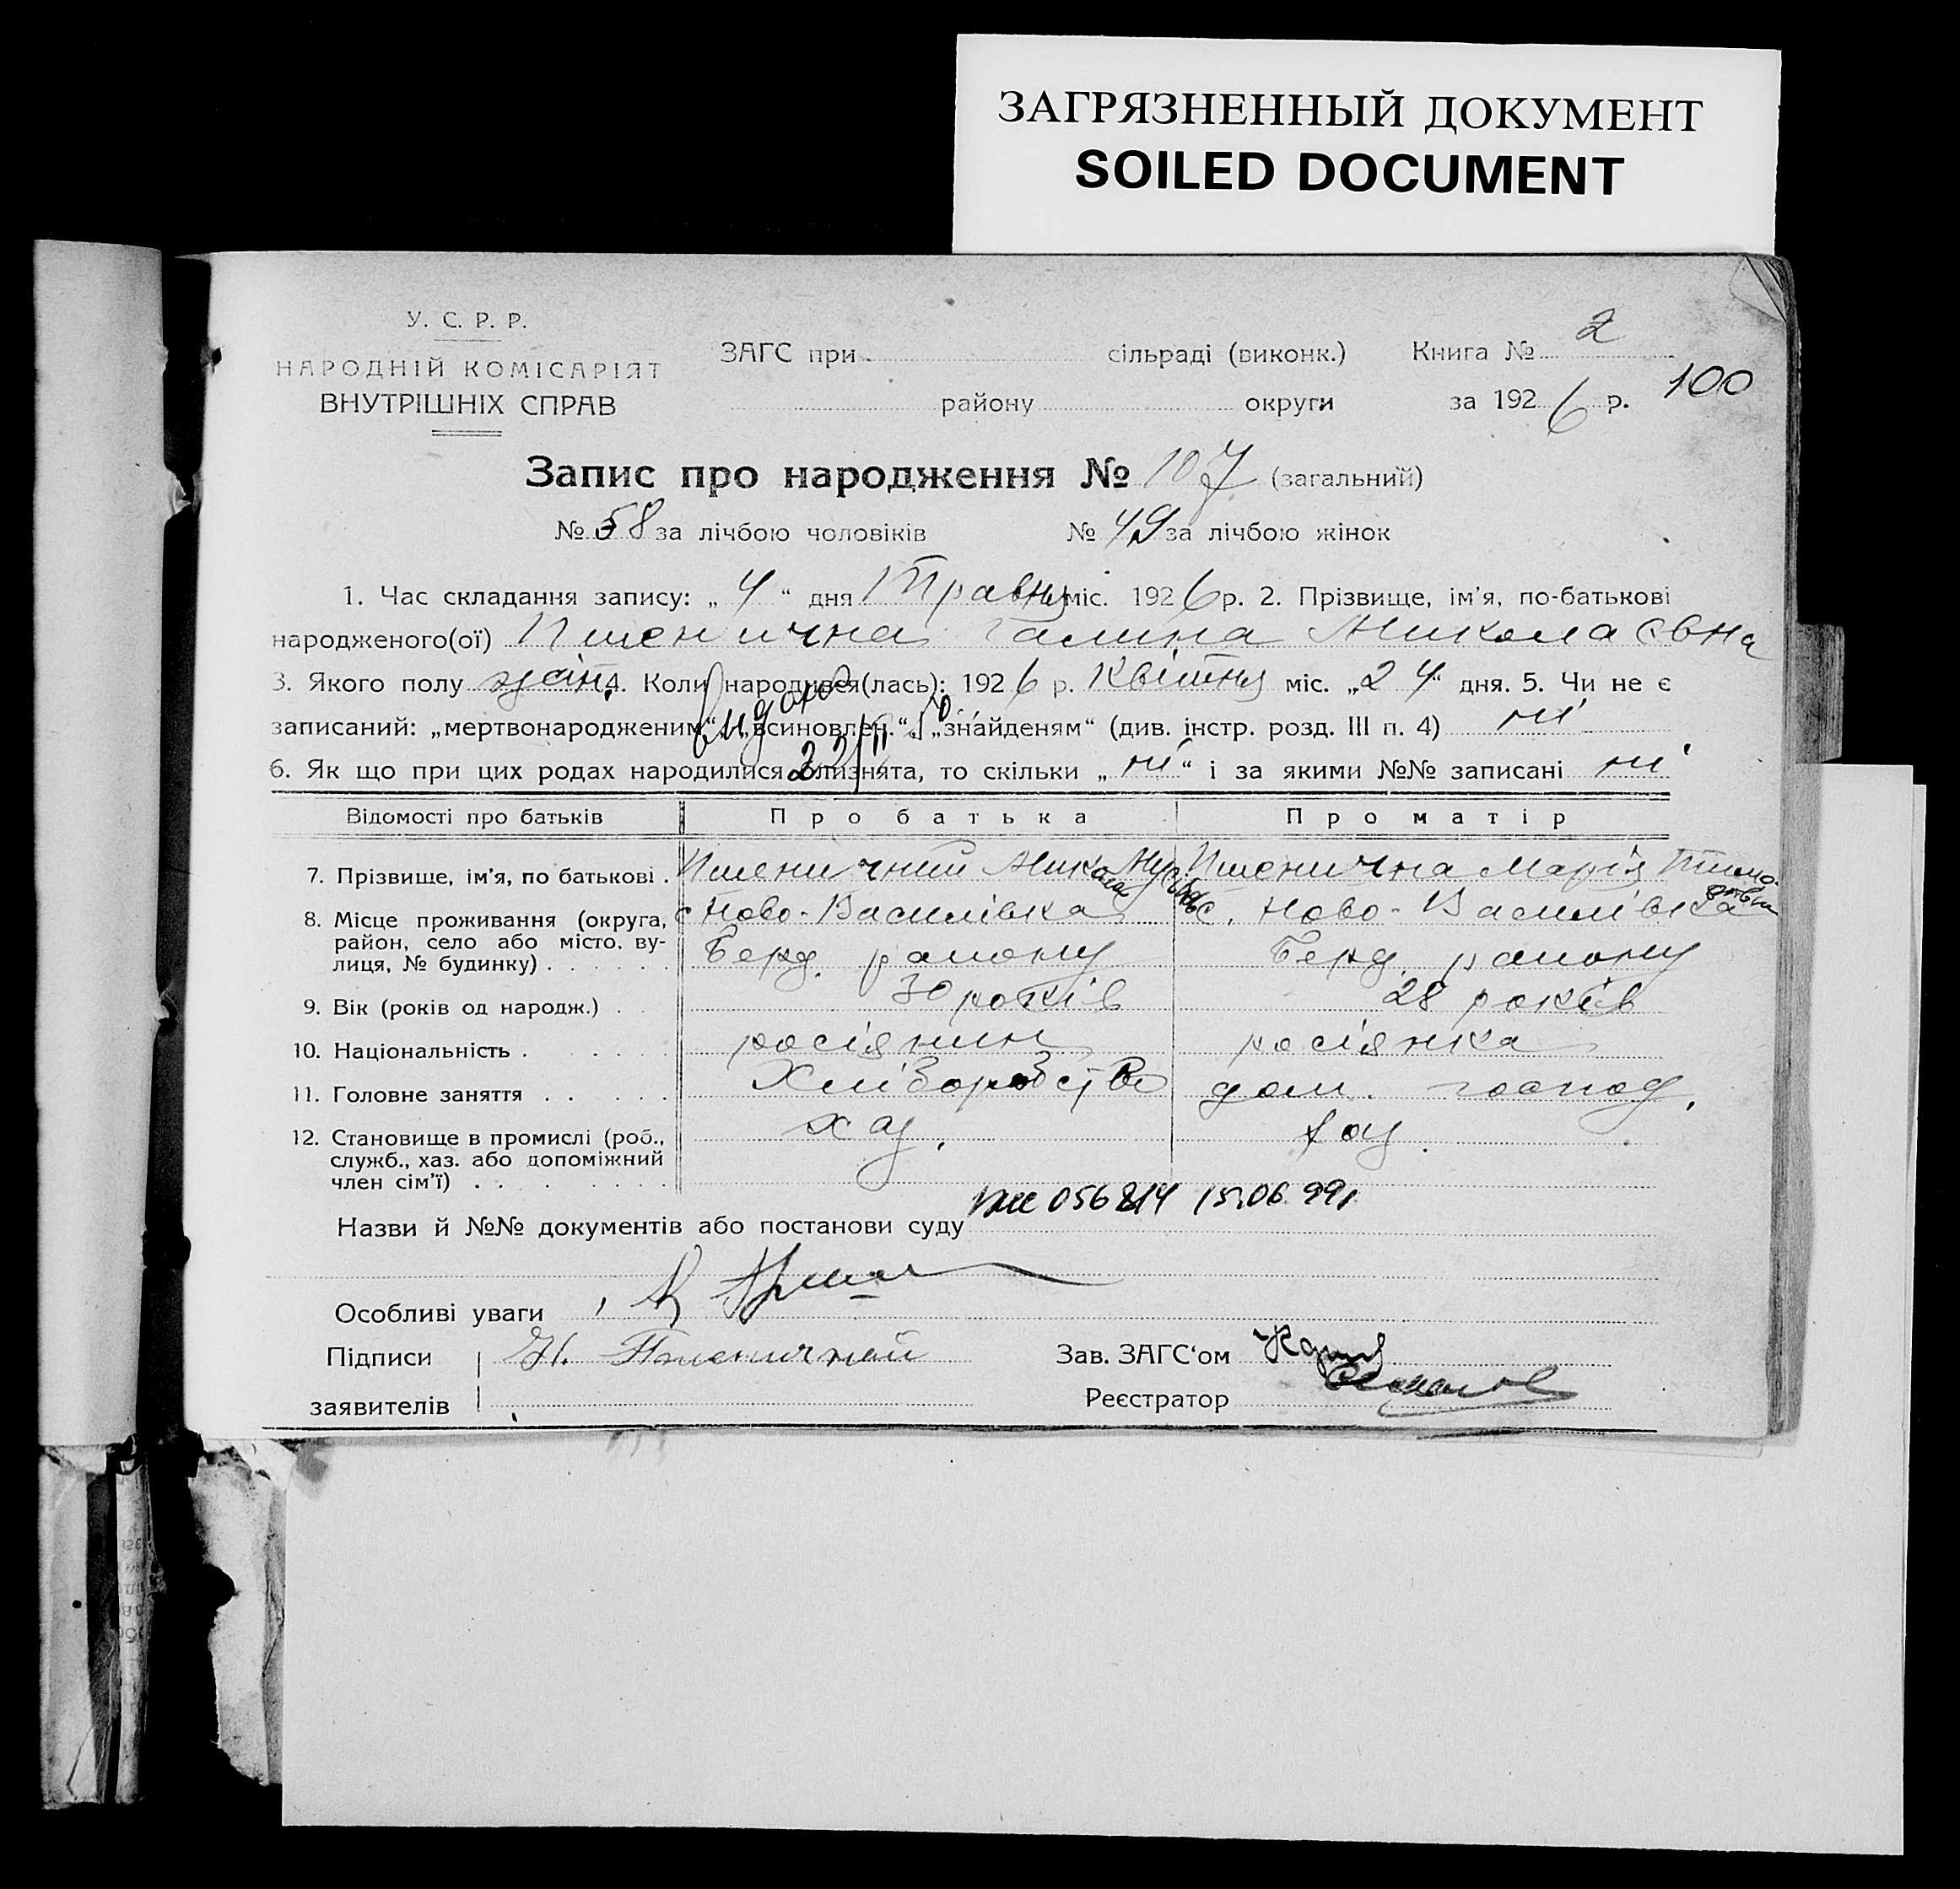 ЗАГРЯЗНЕННЫЙ ДОКУМЕНТ
SOILED DOCUMENT
У. С. Р. Р.
НАРОДНІЙ КОМІСАРІЯТ
ВНУТРІШНІХ СПРАВ
ЗАГС при сільраді (виконк.) Книга № 2
району округи за 1926 р. 100
Запис про народження № 107 (загальний)
№ 58 за лічбою чоловіків № 49 за лічбою жінок
1. Час складання запису: „4“ дня Травня міс. 1926 р. 2. Прізвище, ім’я, по-батькові
народженого(ої) Пшенична Галина Миколаєвна
3. Якого полу жін. 4. Коли народився(лась): 1926 р. Квітня міс. „24“ дня. 5. Чи не є
записаний: „мертвонародженим“, „всиновлен.“, „знайденям“ (див. інстр. розд. III п. 4) ні
6. Як що при цих родах народилися близнята, то скільки „ні“ і за якими №№ записані ні
Відомості про батьків Про батька Про матір
7. Прізвище, ім’я, по батькові . Пшеничний Микола Пшенична Марія Тимофѣвна
8. Місце проживання (округа, с Ново-Василівка с. Ново-Василівка
район, село або місто, вулиця, № будинку) . . . . . . Берд. району Берд. району
9. Вік (років од народж.) . . 30 років 28 років
10. Національність . . . . . росіянин росіянка
11. Головне заняття . . . . . Хліборобство дом. господ.
12. Становище в промислі (роб., хаз. хаз.
служб., хаз. або допоміжний
член сім’ї) . . . . . . .
Назви й №№ документів або постанови суду 056814 15.06.99
Особливі уваги
Підписи Н. Пшеничный Зав. ЗАГС‘ом
заявителів Реєстратор